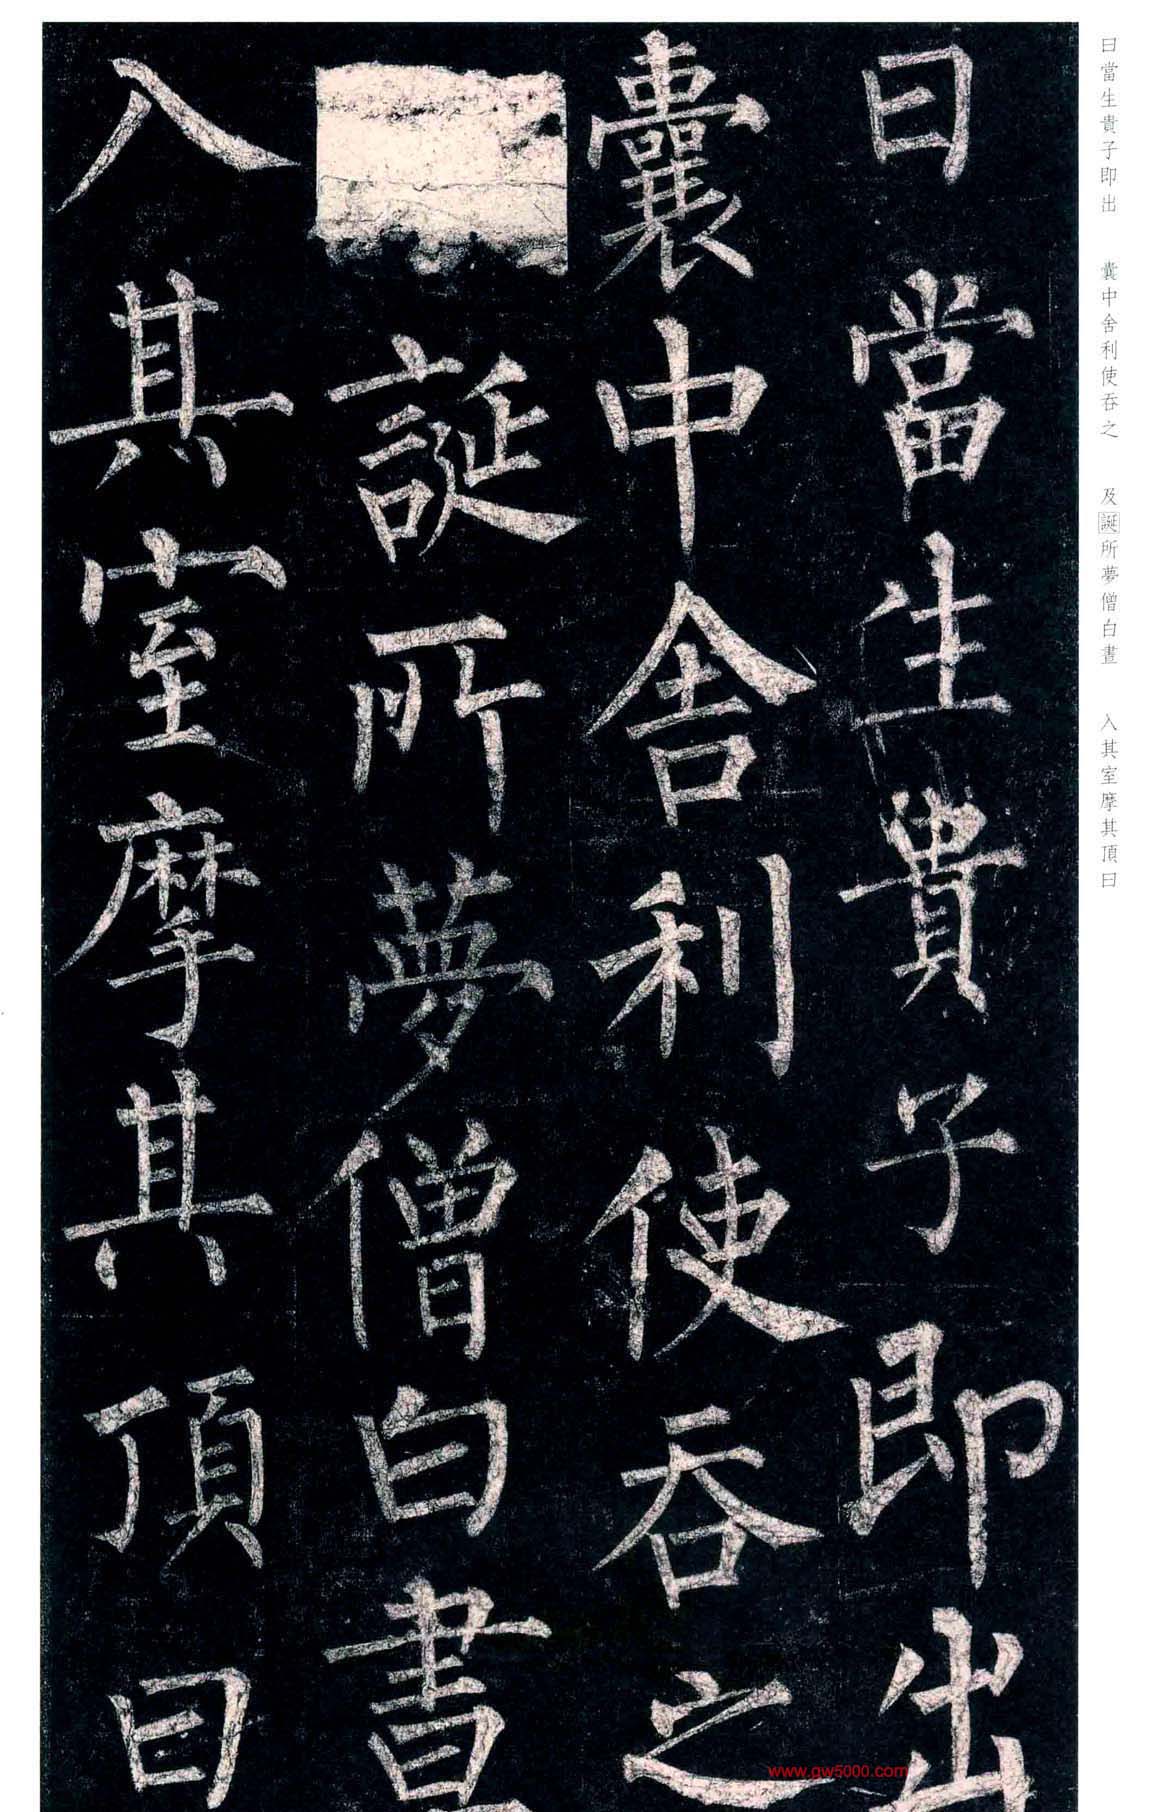 曰當生貴子即出
囊中舍利使吞之
誕所夢僧白晝
入其室摩其頂曰
曰當生貴子即出　囊中舍利使吞之　及誕所夢僧白晝　入其室摩其頂曰
www.gw5000.com